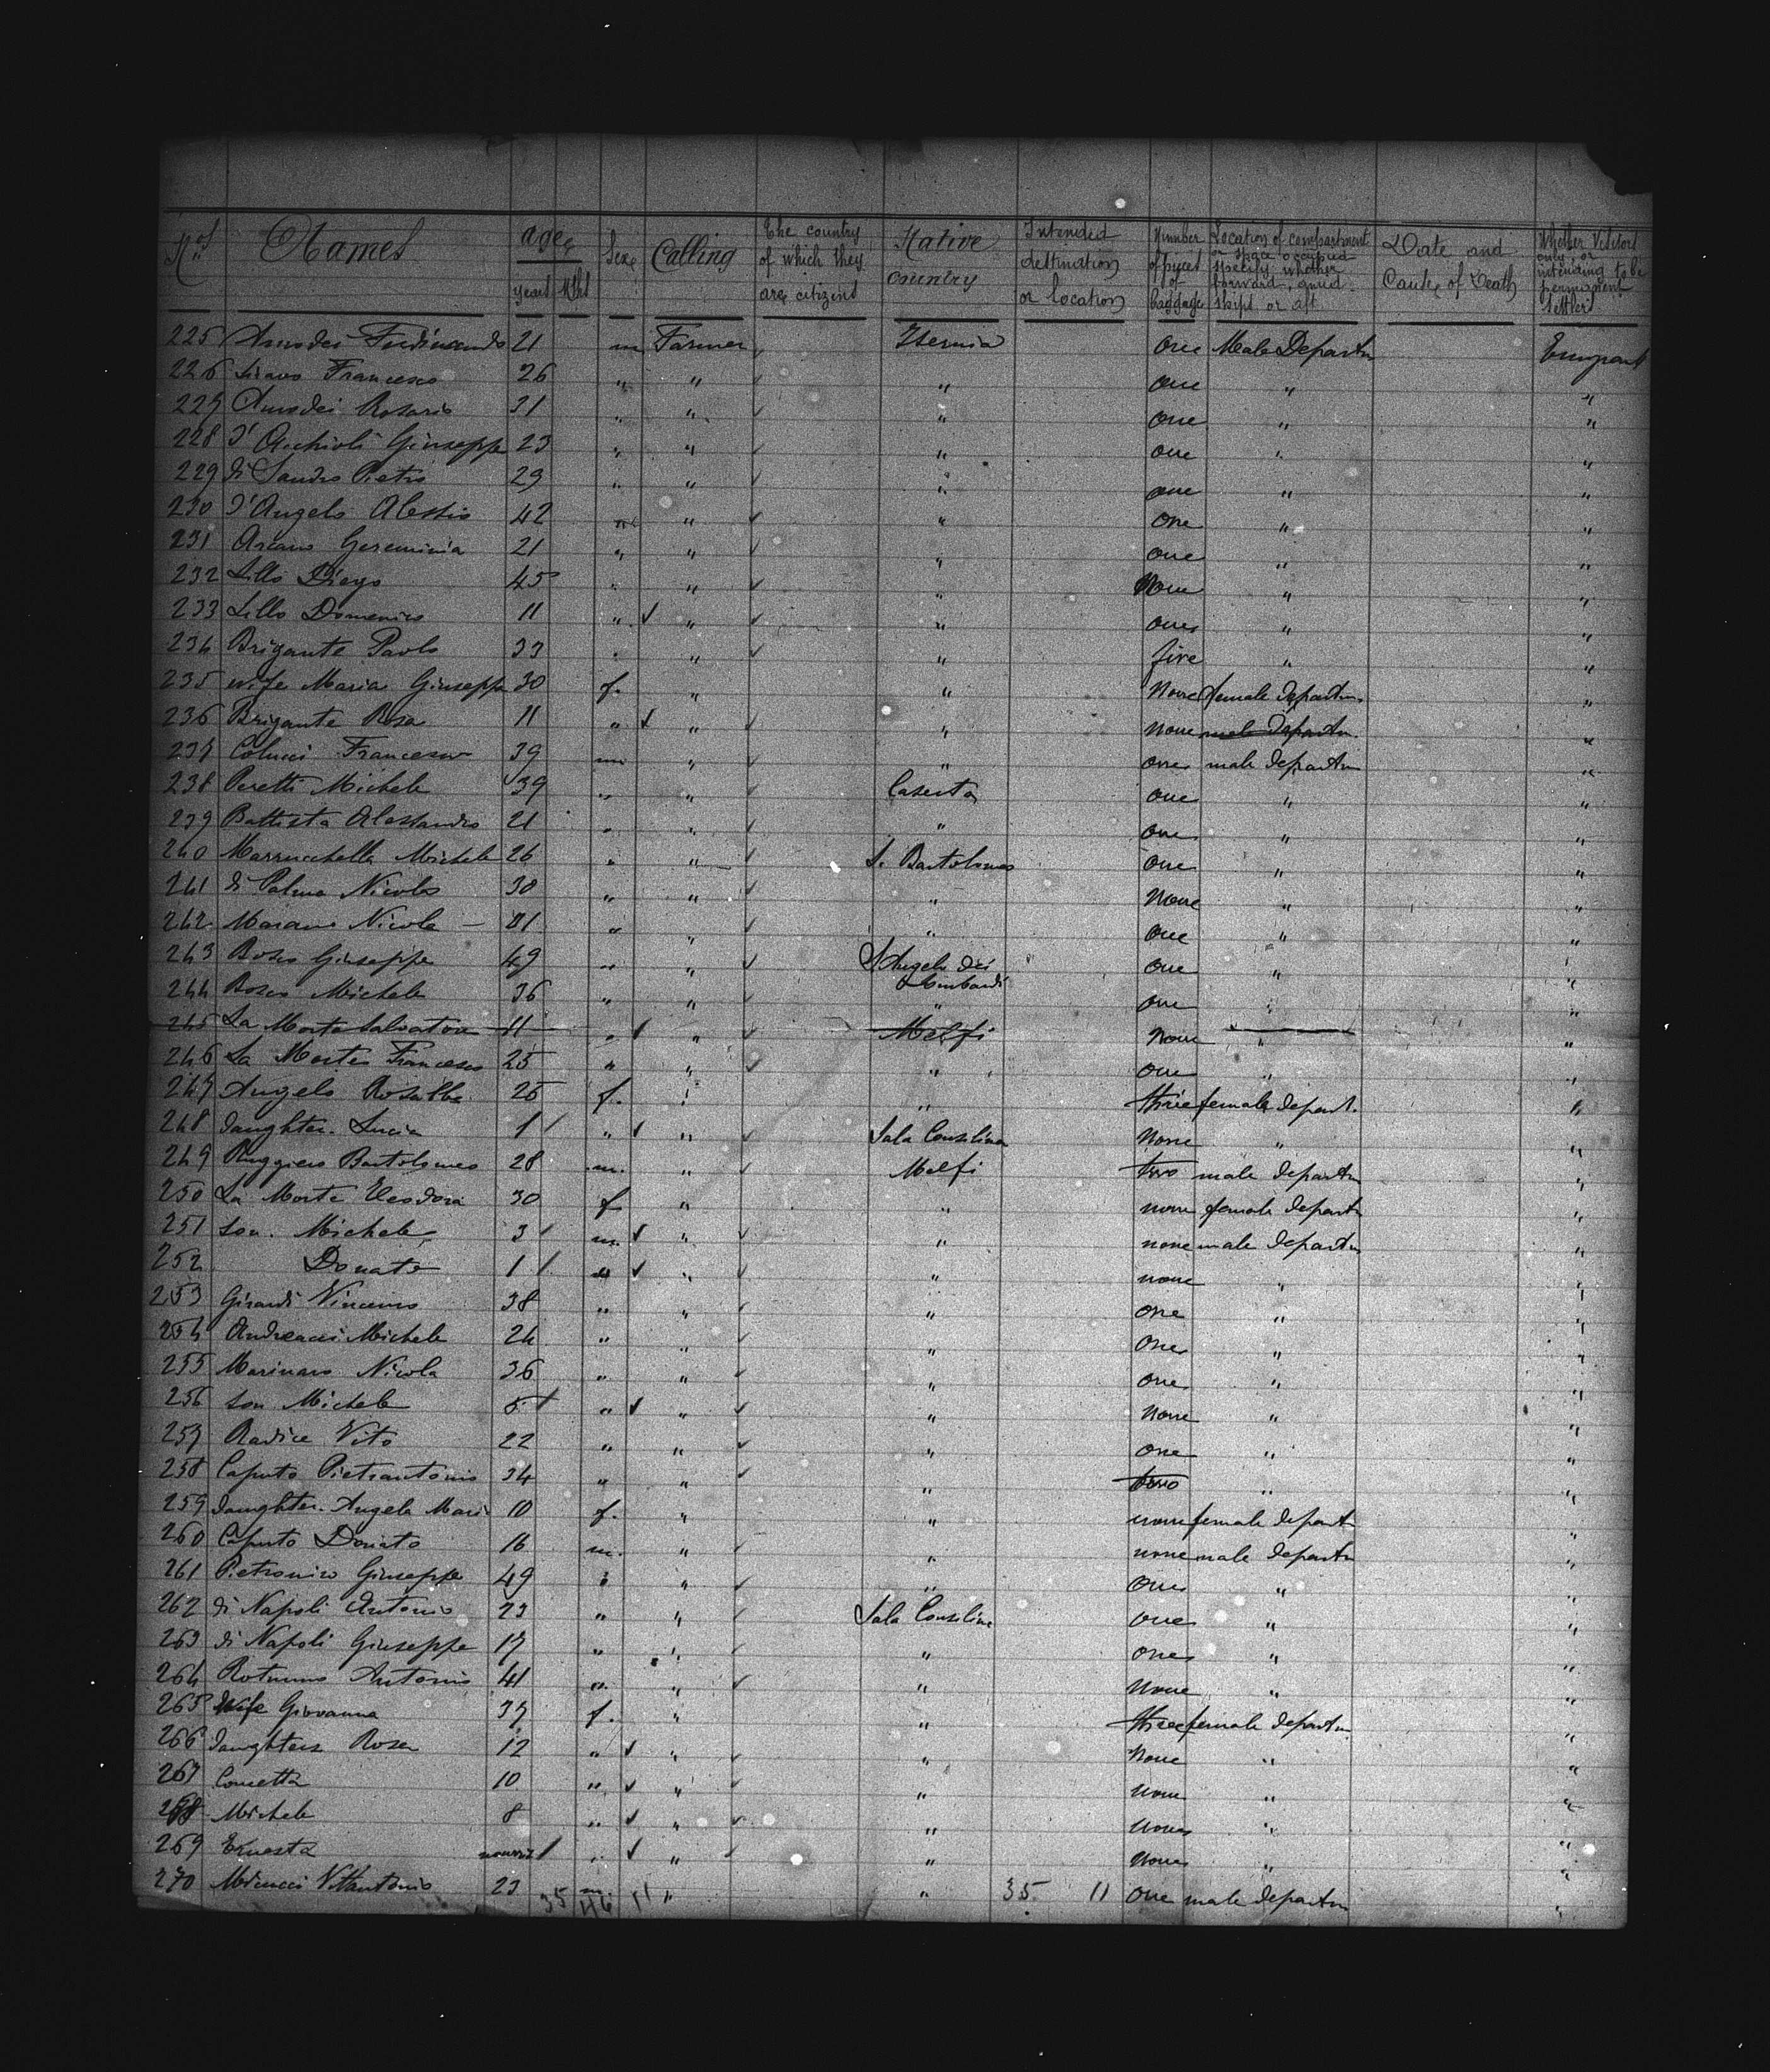 Nos Names ages years Mths Sex Calling The country of which they are citizens Native country Intended destination or location Number of pyces of baggage Location of compartment or space occupied specify whether forward, amid ships or aft Date and Cause of Death Whether Visitors only, or intending to be permanent settlers
225 Amodei Ferdinando 21 m Farmer Isernia one Male Departm Emigrant
226 Siravo Francesco 26 " " " one " "
227 Amodei Rosario 31 " " " one " "
228 D'Acchioli Giuseppe 23 " " " one " "
229 di Sandro Pietro 29 " " " one " "
230 D'Angelo Alessio 42 " " " one " "
231 Arcano Geremia 21 " " " one " "
232 Lillo Diego 45 " " " None " "
233 Lillo Domenico 11 " " " one " "
234 Brigante Paolo 33 " " " five " "
235 wife Maria Giuseppa 30 f. " " None female departm. "
236 Brigante Rosa 11 " " " none male departm. "
237 Colucci Francesco 39 m " " one male departm "
238 Peretti Michele 39 " " Caserta one " "
239 Battista Alessandro 21 " " " one " "
240 Marrucchella Michele 26 " " S. Bartolomeo one " "
241 di Palma Nicola 38 " " " None " "
242 Marano Nicola - 21 " " " one " "
243 Bosco Giuseppe 49 " " S Angelo dei Lombardi one " "
244 Bosco Michele 36 " " " one " "
245 La Morte Salvatore 11 " " Melfi None " "
246 La Morte Francesco 25 " " " one " "
247 Angelo Rosalba 25 f. " " three female depart. "
248 daughter. Lucia 1 " " Sala Consilina None " "
249 Ruggiero Bartolomeo 28 m. " Melfi two male departm "
250 La Morte Eleodora 30 f " " none female departm "
251 son. Michele 3 m. " " none male departm "
252 Donato 1 " " " none " "
253 Girardi Vincenzo 38 " " " one " "
254 Andreucci Michele 24 " " " one " "
255 Marinaro Nicola 36 " " " one " "
256 son Michele 5 " " " None " "
257 Radice Vito 22 " " " one " "
258 Caputo Pietrantonio 34 " " " two " "
259 daughter. Angela Mari 10 f. " " none female departm "
260 Caputo Donato 16 m. " " none male departm "
261 Pietronico Giuseppe 49 " " " one " "
262 di Napoli Antonio 23 " " Sala Consilina one " "
263 di Napoli Giuseppe 17 " " " one " "
264 Rotunno Antonio 41 " " " None " "
265 Wife Giovanna 37 f. " " three female departm "
266 daughters Rosa 12 " " " None " "
267 Concetta 10 " " " None " "
268 Michele 8 " " " None " "
269 Ernesta " " " None " "
270 Micucci Vittantonio 23 m. " " one male departm "
35 46 11 35 11